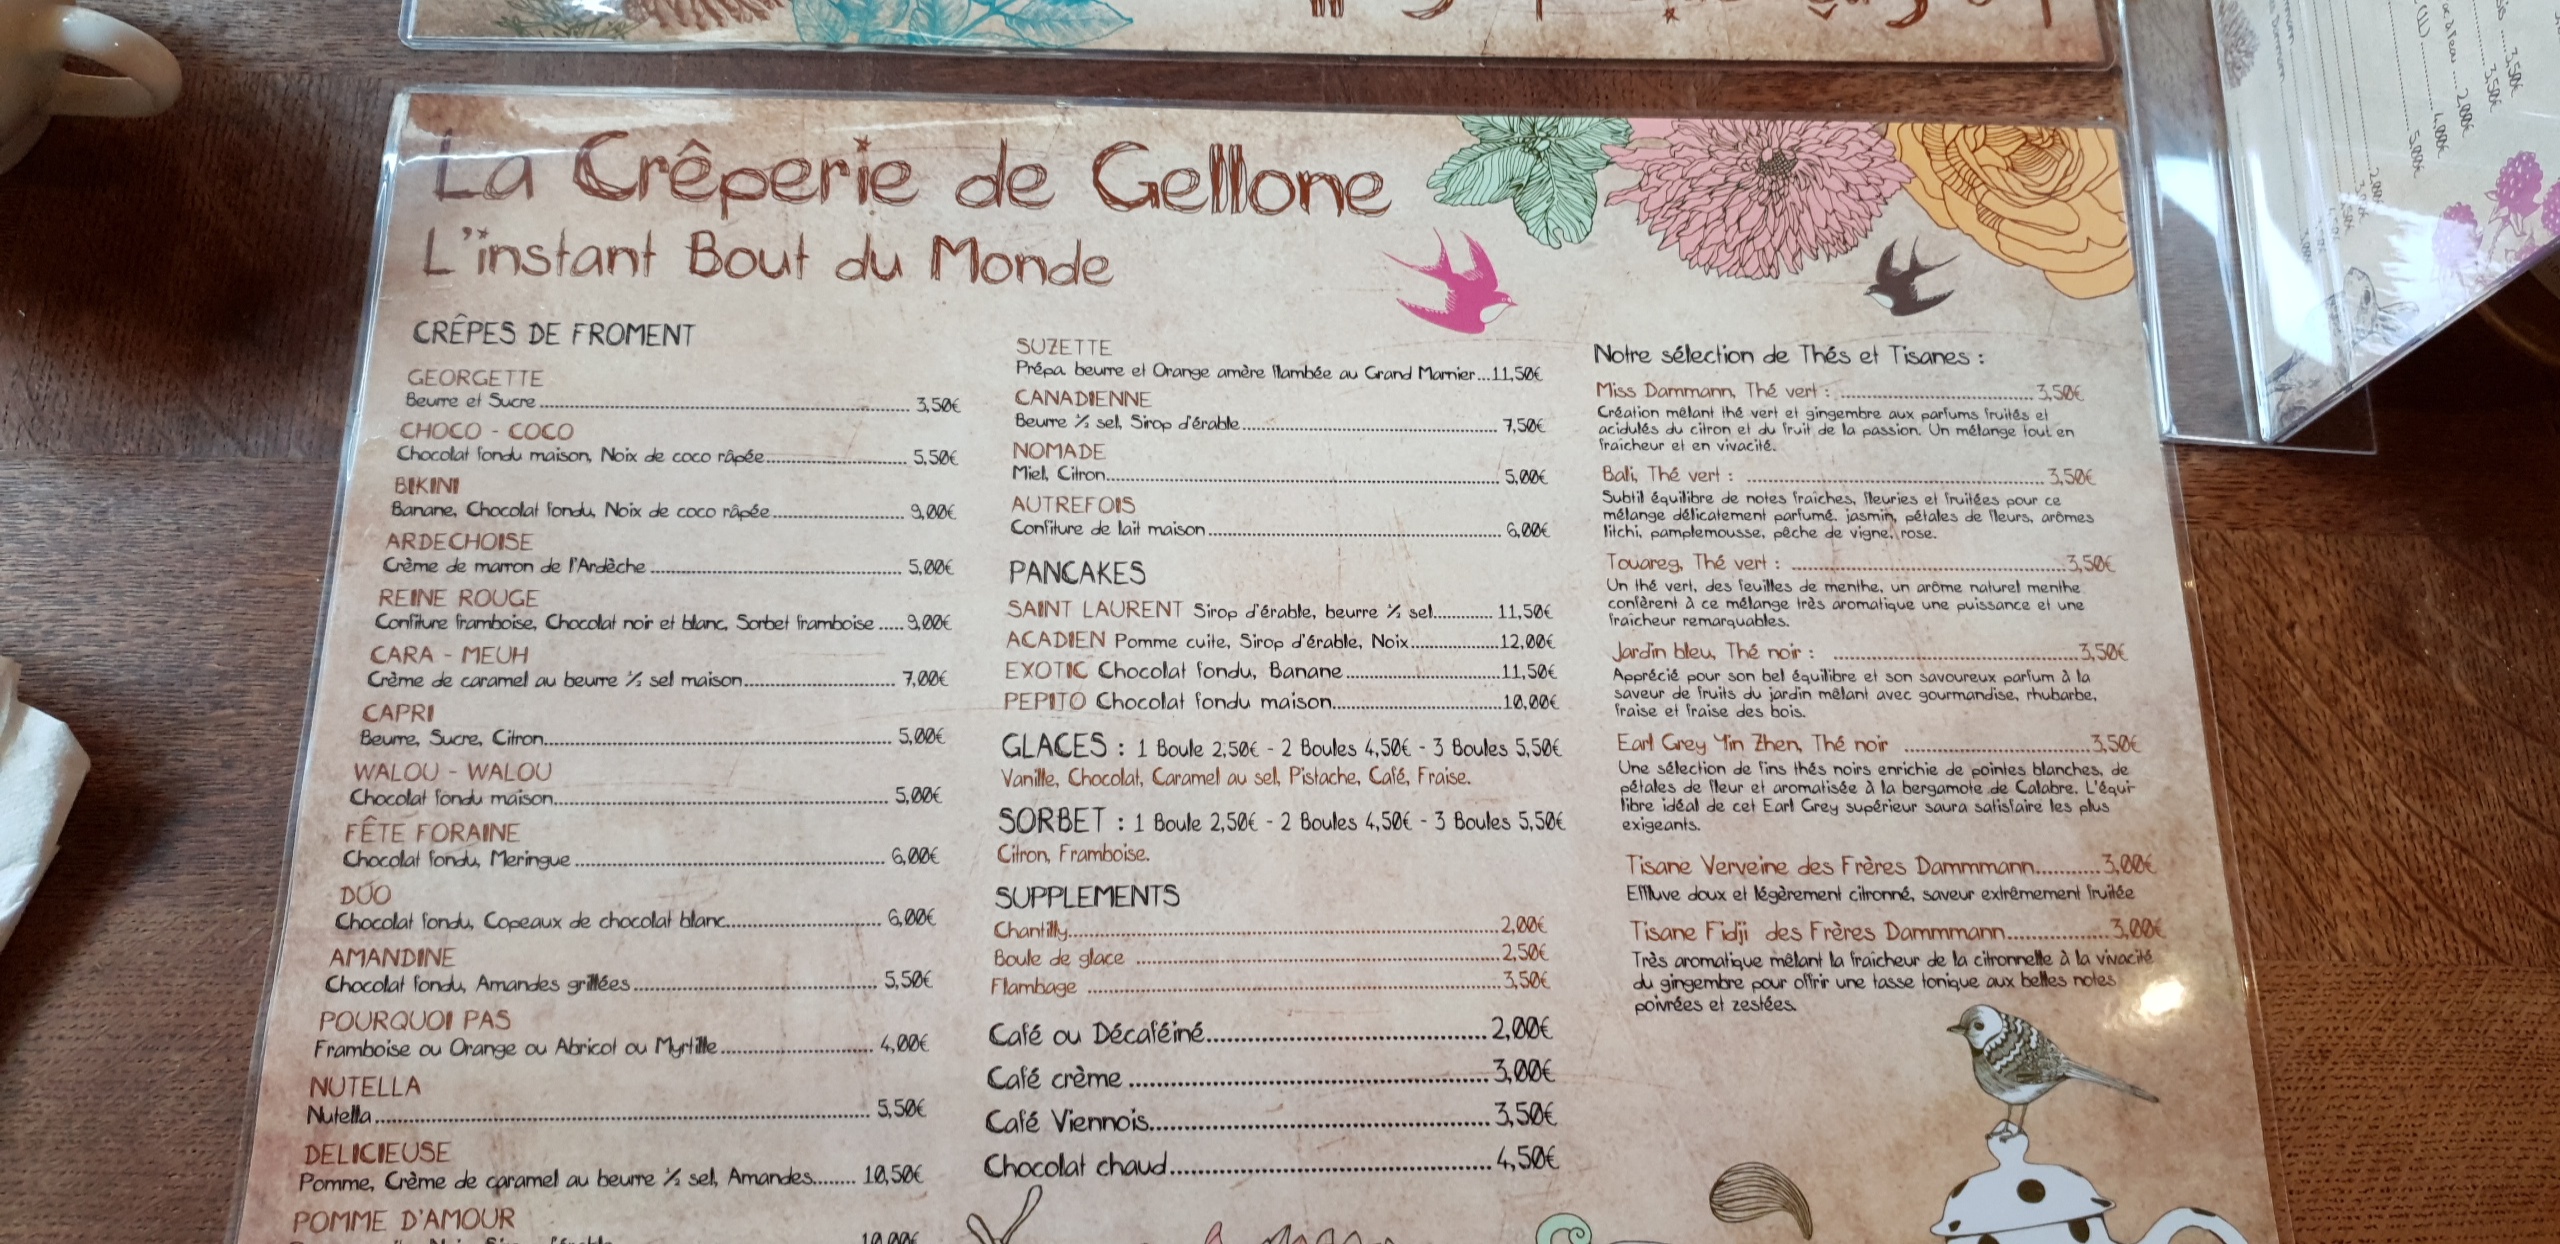 La Crêperie de Gellone
L'instant Bout du Monde
CRÊPES DE FROMENT
GEORGETTE
Beurre et Sucre 3,50€
CHOCO - COCO
Chocolat fondu maison, Noix de coco râpée 5,50€
BIKINI
Banane, Chocolat fondu, Noix de coco râpée 9,00€
ARDECHOISE
Crème de marron de l'Ardèche 5,00€
REINE ROUGE
Confiture framboise, Chocolat noir et blanc, Sorbet framboise 9,00€
CARA - MEUH
Crème de caramel au beurre ½ sel maison 7,00€
CAPRI
Beurre, Sucre, Citron 5,00€
WALOU - WALOU
Chocolat fondu maison 5,00€
FÊTE FORAINE
Chocolat fondu, Meringue 6,00€
DUO
Chocolat fondu, Copeaux de chocolat blanc 6,00€
AMANDINE
Chocolat fondu, Amandes grillées 5,50€
POURQUOI PAS
Framboise ou Orange ou Abricot ou Myrtille 4,00€
NUTELLA
Nutella 5,50€
DELICIEUSE
Pomme, Crème de caramel au beurre ½ sel, Amandes 10,50€
POMME D'AMOUR
10,00€
SUZETTE
Prépa. beurre et Orange amère flambée au Grand Marnier...11,50€
CANADIENNE
Beurre ½ sel, Sirop d'érable 7,50€
NOMADE
Miel, Citron 5,00€
AUTREFOIS
Confiture de lait maison 6,00€
PANCAKES
SAINT LAURENT Sirop d'érable, beurre ½ sel 11,50€
ACADIEN Pomme cuite, Sirop d'érable, Noix 12,00€
EXOTIC Chocolat fondu, Banane 11,50€
PEPITO Chocolat fondu maison 10,00€
GLACES : 1 Boule 2,50€ - 2 Boules 4,50€ - 3 Boules 5,50€
Vanille, Chocolat, Caramel au sel, Pistache, Café, Fraise.
SORBET : 1 Boule 2,50€ - 2 Boules 4,50€ - 3 Boules 5,50€
Citron, Framboise.
SUPPLEMENTS
Chantilly 2,00€
Boule de glace 2,50€
Flambage 3,50€
Café ou Décaféiné 2,00€
Café crème 3,00€
Café Viennois 3,50€
Chocolat chaud 4,50€
Notre sélection de Thés et Tisanes :
Miss Dammann, Thé vert : 3,50€
Création mêlant thé vert et gingembre aux parfums fruités et
acidulés du citron et du fruit de la passion. Un mélange tout en
fraicheur et en vivacité.
Bali, Thé vert : 3,50€
Subtil équilibre de notes fraiches, fleuries et fruitées pour ce
mélange délicatement parfumé. jasmin, pétales de fleurs, arômes
litchi, pamplemousse, pêche de vigne, rose.
Touareg, Thé vert : 3,50€
Un thé vert, des feuilles de menthe, un arôme naturel menthe
confèrent à ce mélange très aromatique une puissance et une
fraicheur remarquables.
Jardin bleu, Thé noir : 3,50€
Apprécié pour son bel équilibre et son savoureux parfum à la
saveur de fruits du jardin mêlant avec gourmandise, rhubarbe,
fraise et fraise des bois.
Earl Grey Yin Zhen, Thé noir 3,50€
Une sélection de fins thés noirs enrichie de pointes blanches, de
pétales de fleur et aromatisée à la bergamote de Calabre. L'équi-
libre idéal de cet Earl Grey supérieur saura satisfaire les plus
exigeants.
Tisane Verveine des Frères Dammmann 3,00€
Effluve doux et légèrement citronné, saveur extrêmement fruitée
Tisane Fidji des Frères Dammmann 3,00€
Très aromatique mêlant la fraicheur de la citronnelle à la vivacité
du gingembre pour offrir une tasse tonique aux belles notes
poivrées et zestées.
3,50€
3,50€
2,00€
4,00€
5,00€